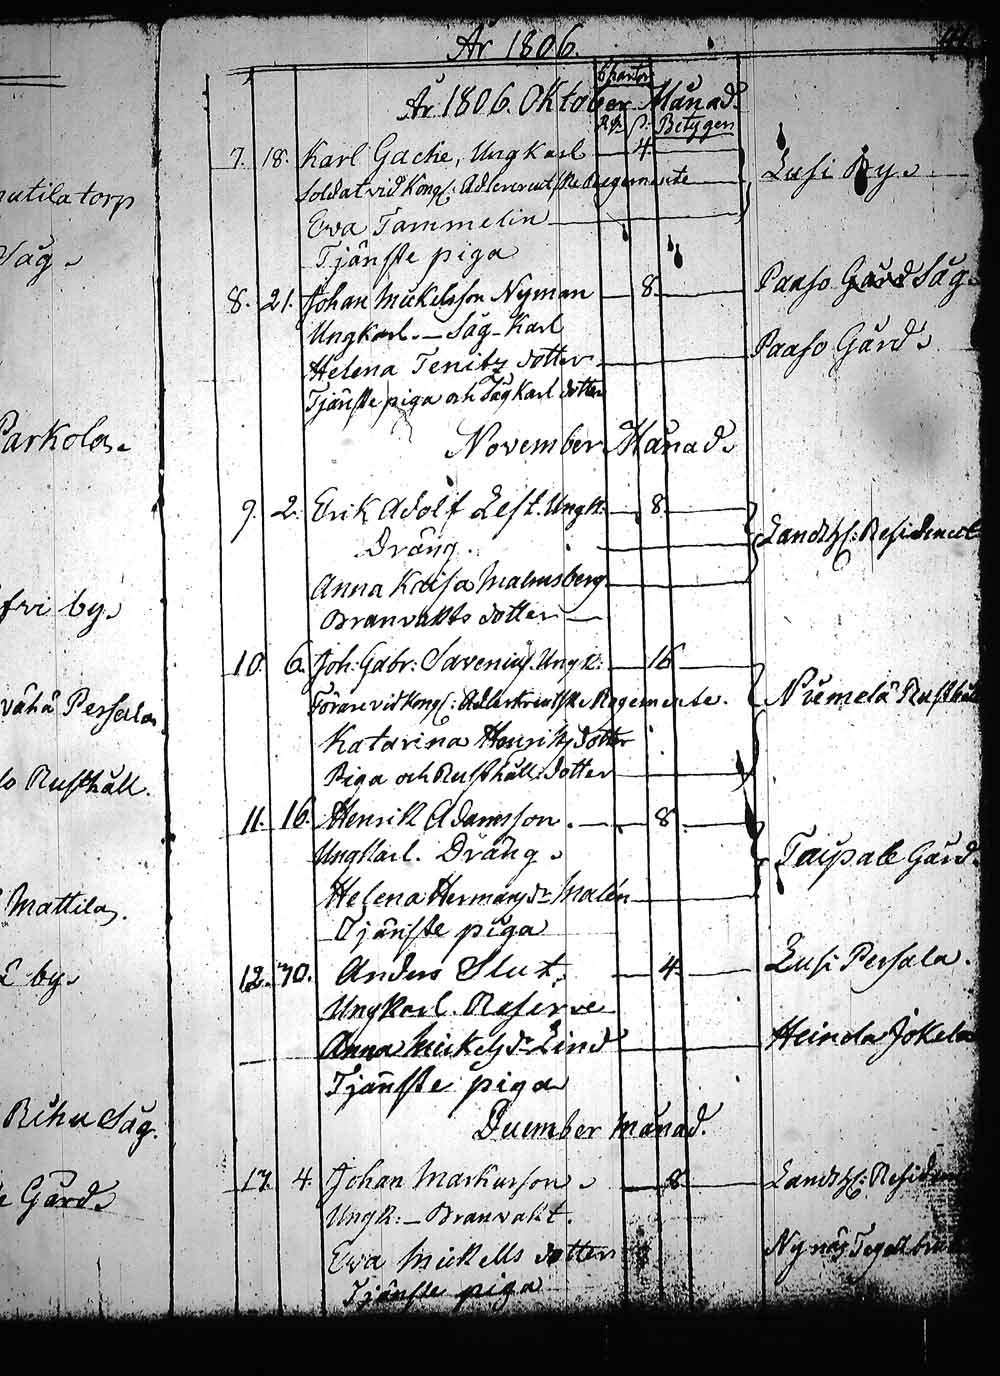 År 1806.
Chartor
År 1806. Oktober Månad.
Rdr. ß. Betygen
7. 18. Karl Gacke, Ungkarl 4. Lusi By.
Soldat vid Kongl: Adlercreutzske Regemente
nutila torp
Eva Tammelin
Såg.
Tjänste piga
8. 21. Johan Mickelsson Nyman 8. Paaso Gård Såg.
Ungkarl. – Såg Karl
Helena Tenitz dotter Paaso Gård.
Tjänste piga och Sågkarl dotter
Parkola.
November Månad.
9. 2. Erik Adolf Left. Ungk: 8. Landzh: Residencet
Dräng.
Anna Kaisa Malmsberg
fri by.
Branvakts dotter
10. 6. Joh: Gabr: Savenius. Ungk: 16
Förare vid Kongl: Adlerkreutzske Regemente. Niemelä Rusthåll
vähä Persala
Katarina Henriksdotter
Piga och Rusthåll: dotter
lo Rusthåll.
11. 16. Henrik Adamsson. 8
Ungkarl. Dräng. Taipale Gård.
Helena Hermansdr Malén
Mattila.
Tjänste piga
12. 30. Anders Slut. 4. Lusi Persala.
by.
Ungkarl. Reserve
Anna Mickelsdr Lind Heinola Jokela
Tjänste piga
Rihu Såg.
December månad.
13. 4. Johan Markusson. 8 Landzh: Residen
Gård.
Ungk: – Branvakt.
Eva Mickells dotter Nynäs Tegelbruk
Tjänste piga